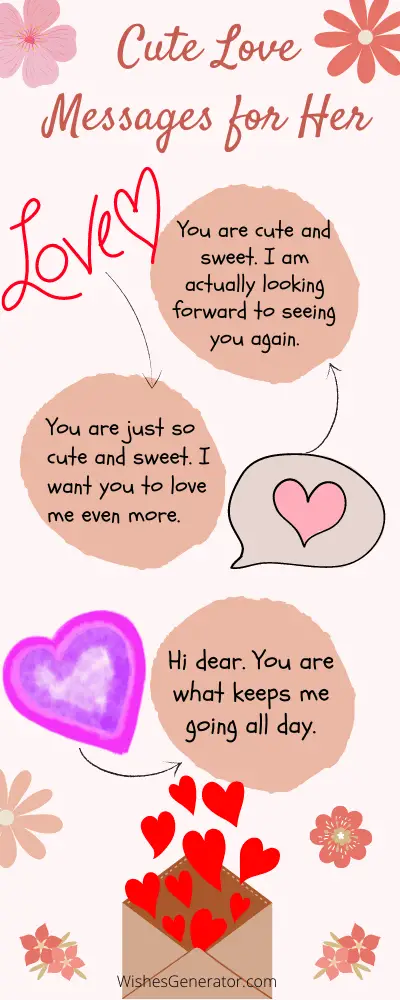 Cute Love
Messages for Her
Love
You are cute and
sweet. I am
actually looking
forward to seeing
you again.
You are just so
cute and sweet. I
want you to love
me even more.
Hi dear. You are
what keeps me
going all day.
WishesGenerator.com